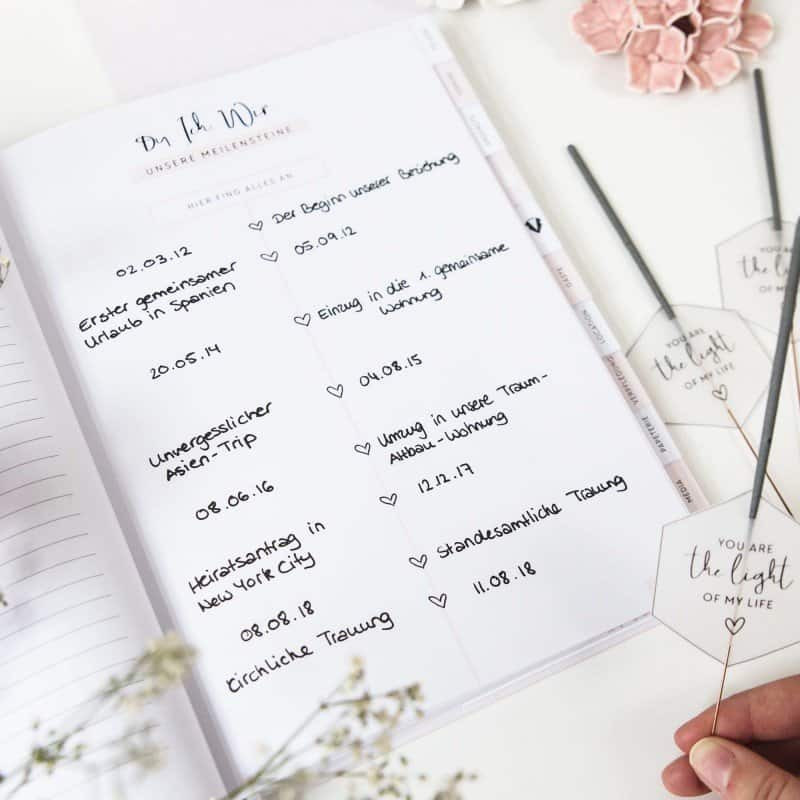 Du, Ich, Wir
UNSERE MEILENSTEINE
HIER FING ALLES AN
Der Beginn unserer Beziehung
02.03.12
05.09.12
Erster gemeinsamer
Urlaub in Spanien
Einzug in die 1. gemeinsame
Wohnung
20.05.14
04.08.15
Unvergesslicher
Asien-Trip
Umzug in unsere Traum-
Altbau-Wohnung
08.06.16
12.12.17
Heiratsantrag in
New York City
Standesamtliche Trauung
08.08.18
11.08.18
Kirchliche Trauung
GÄSTE
LOCATION
VERPFLEGUNG
PAPETERIE
MEDIA
YOU
the
OF MY
YOU ARE
the light
OF MY LIFE
YOU ARE
the light
OF MY LIFE